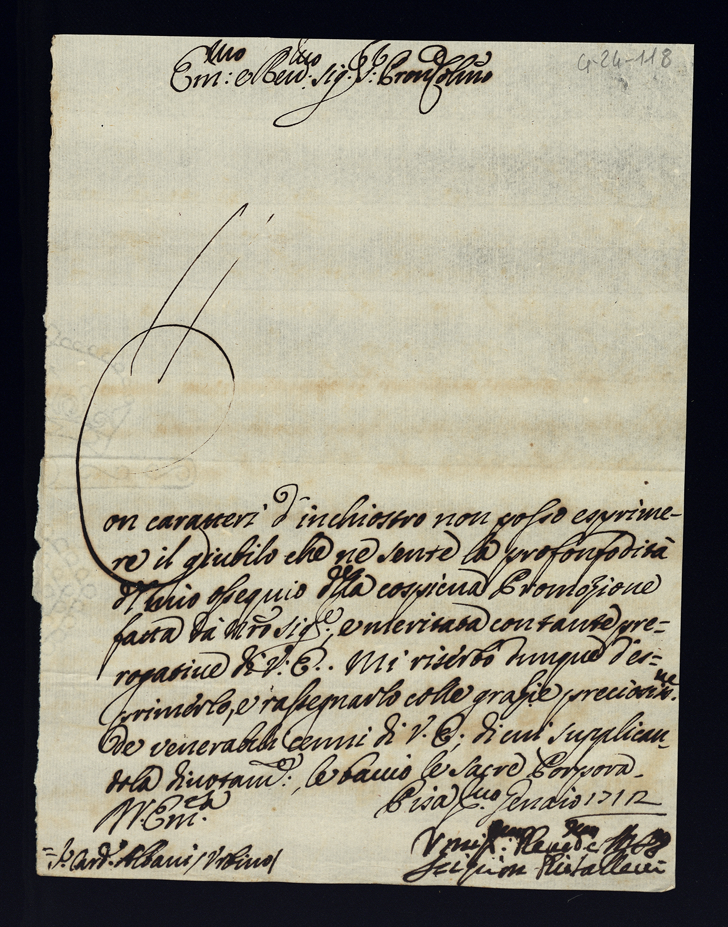 4-24-118
Em:mo e Reud:mo Sig:r P:ron Col:mo
Con caratteri d'inchiostro non posso esprime-
re il giubilo che ne sente la profondità
del mio ossequio della cospicua Promozione
fatta da Nro Sig:re, e meritata con tante pre-
rogatiue di V: E:. Mi riserbo dunque d'es-
primerlo, e rassegnarlo colle grazie preciosiss:me
de venerabili cenni di V: E:, di cui supplican-
dola diuotam:te, le baccio le sacre Porpora.
Pisa Genaio 1712
V: Em:za
S:r Card:l Albani / Vrbino /
Vmi:mo Scipion